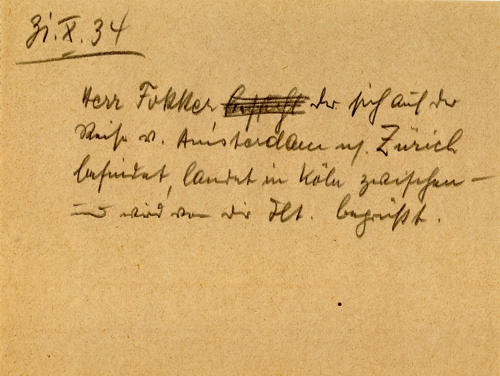 31.X.34
Herr Fokker der sich auf der
Reise v. Amsterdam n. Zürich
befindet, landet in Köln zwischen –
und wird von Dir. Ht. begrüßt.